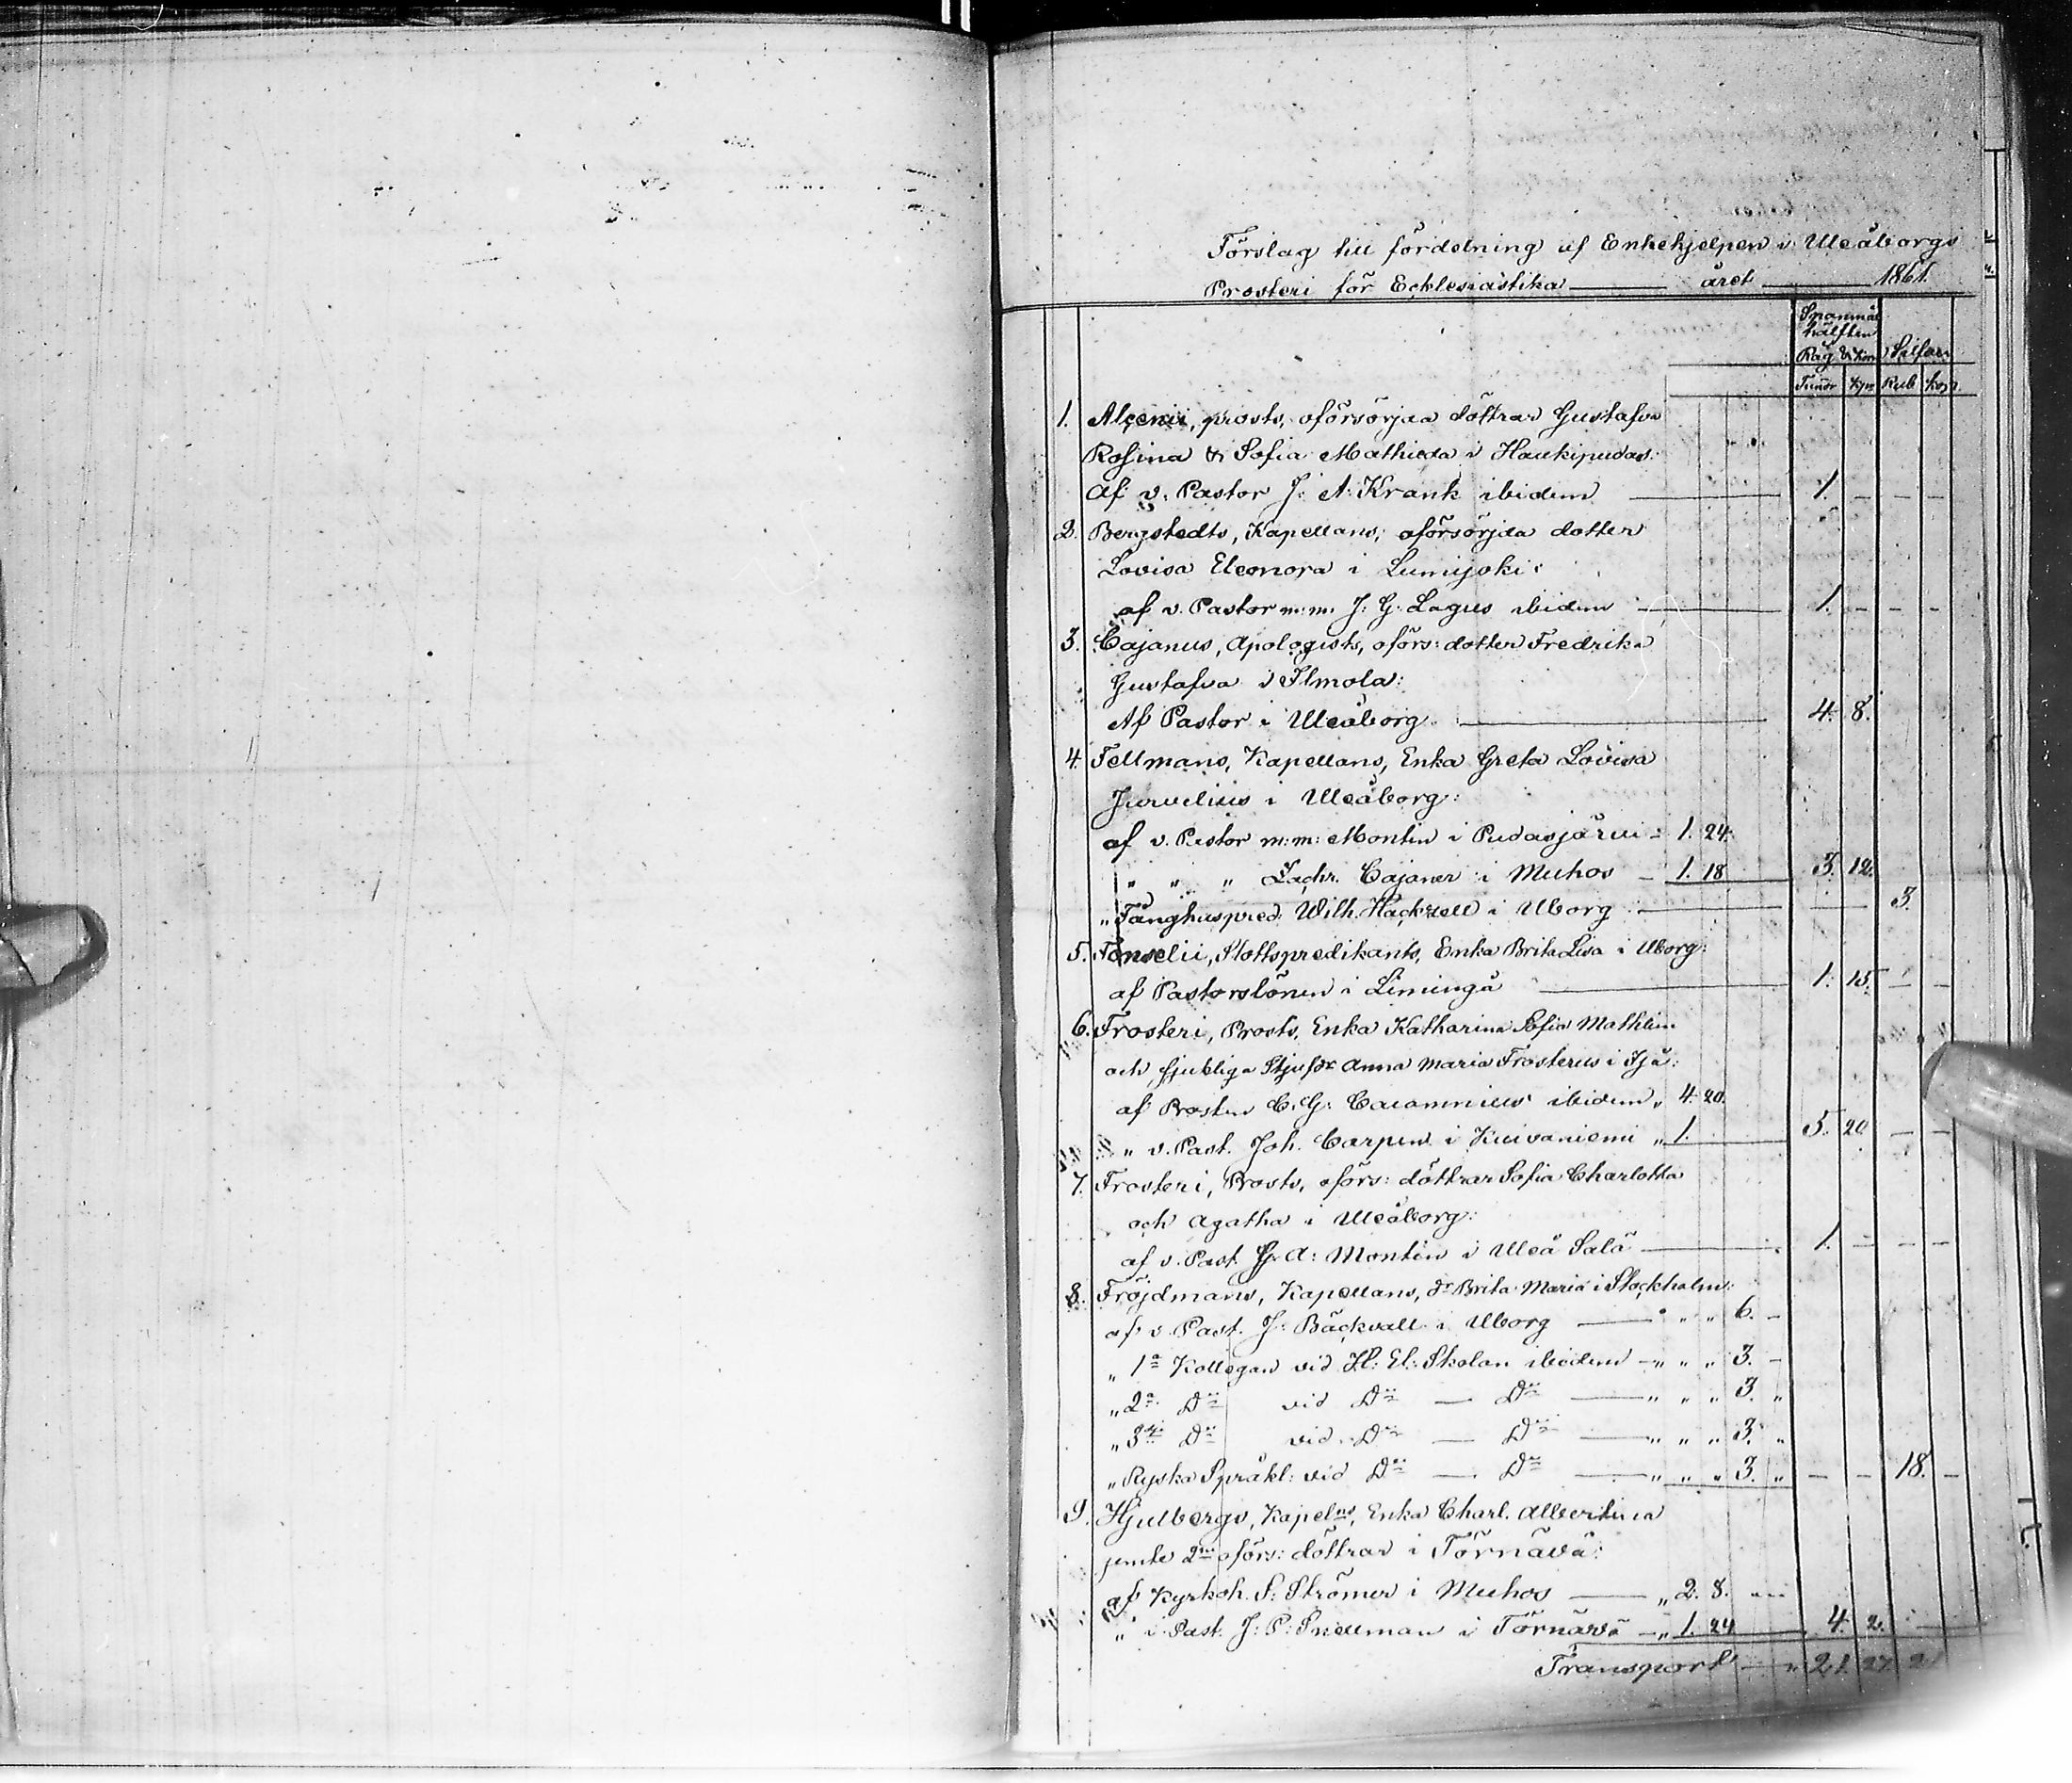 Förslag till fördelning af Enkehjelpen i Uleåborgs
Prosteri för Ecklesiastika året 1861.
Spanmål
hälften
Råg & Korn Silfver
Tunnr Kpr Rub kop.
1. Alcenii, prosts, oförsörjda döttrar Gustafva
Rosina & Sofia Mathilda i Haukipudas:
af v. Pastor J. A. Krank ibidem 1. - - -
2. Bergstedts, Kapellans, oförsörjda dotter
Lovisa Eleonora i Lumijoki:
af v. Pastor m:m: J: G: Lagus ibidem 1. - - -
3. Cajanus, Apologists, oförs: dotter Fredrika
Gustafva i Ilmola:
Af Pastor i Uleåborg 4. 8.
4. Fellmans, Kapellans, Enka Greta Lovisa
Jurvelius i Uleåborg:
af v. Pastor m:m: Montin i Pudasjärvi - 1. 24.
" " " Zachr. Cajaner i Muhos - 1. 18 3. 12.
" Fånghuspred. Wilh. Hackzell i Uborg 3.
5. Fonselii, Slottspredikants, Enka Brita Lisa i Uborg:
af Pastorslönen i Limingå 1. 15. - -
6. Frosteri, Prosts, Enka Katharina Sofia Mathlin
och sjukliga Stjufdr Anna Maria Frosterus i Ijå:
af Prosten C. G: Calamnius ibidem " 4. 20.
" v. Past. Joh. Carpen i Kuivaniemi " 1. 5. 20 - -
7. Frosteri, Prosts, oförs: döttrar Sofia Charlotta
och Agatha i Uleåborg:
af v. Past. G. A: Montin i Uleå Salå 1. - - -
8. Fröjdmans, Kapellans, dr Brita Maria i Stockholm:
af v. Past. J: Bäckvall i Uborg " " 6. -
" 1a Kollegan vid H: El: Skolan ibidem - " " " 3. -
" 2a Do vid Do - Do - " " " 3. "
" 3je Do vid Do - Do - " " " 3. "
" Ryska Språkl: vid Do - Do - " " " 3. " - - 18. -
9. Hjulbergs, Kapelns, Enka Charl. Albertina
jemte 2ne oförs: döttrar i Törnävä:
af Kyrkoh. S: Strömer i Muhos " 2. 8.
" v. Past. J: P: Snellman i Törnävä - " 1. 24 4. 2. - -
Transport " 21. 27. 21